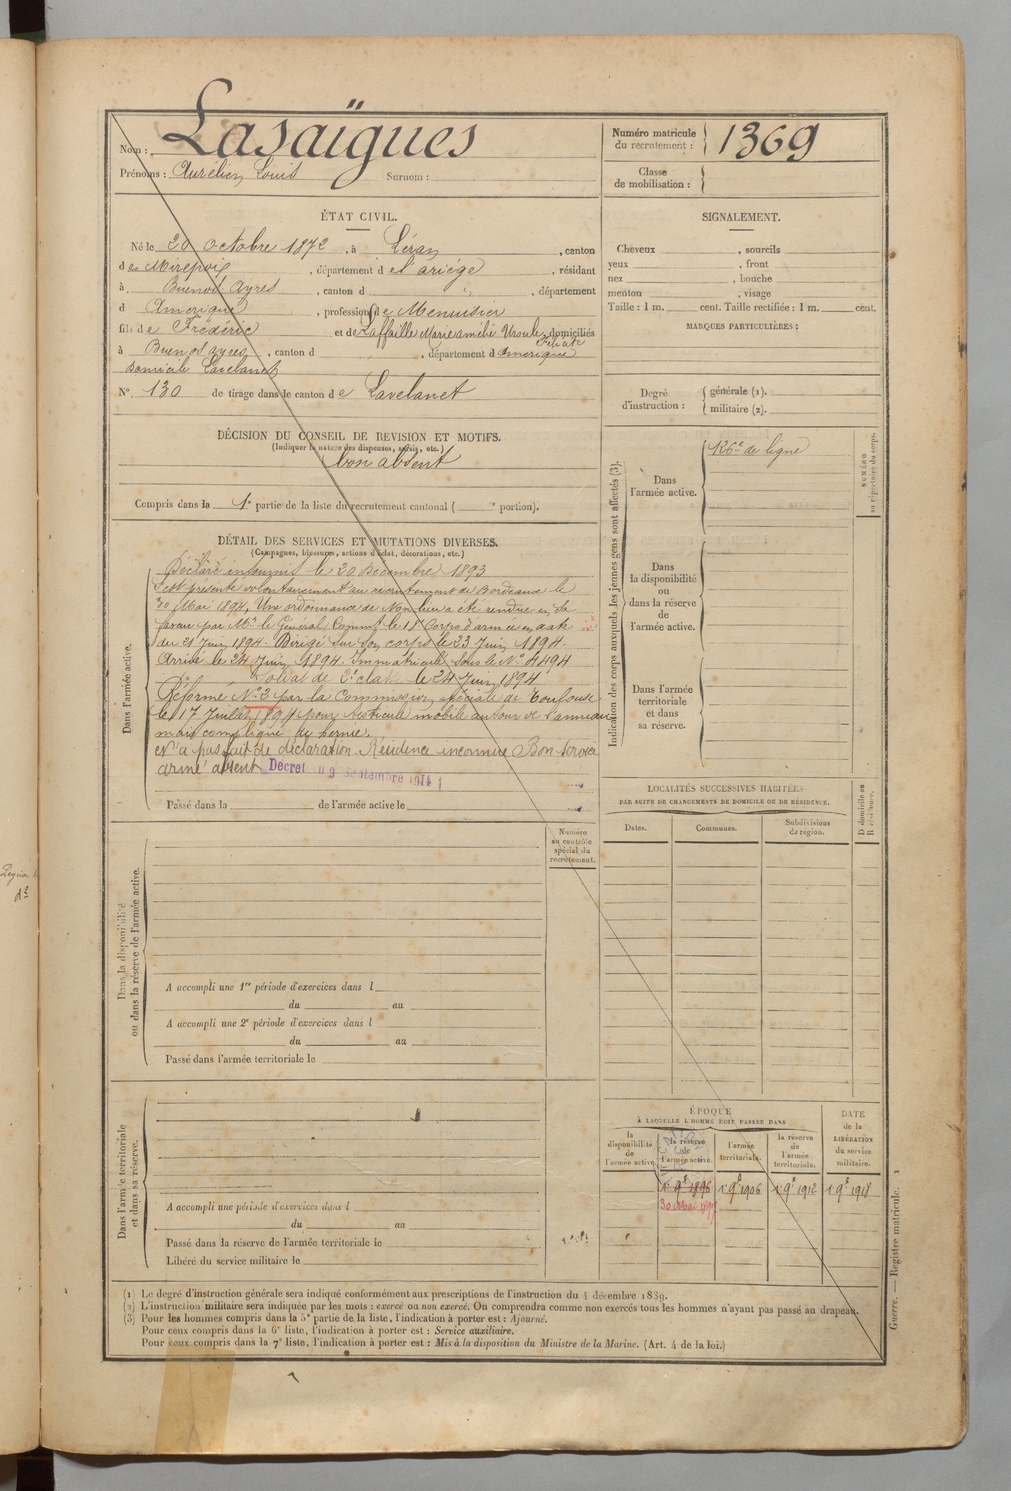 Nom : Lasaïgues
Prénoms : Aurélien Louis Surnom :
Numéro matricule du recrutement : 1369
Classe de mobilisation :
ÉTAT CIVIL.
Né le 20 octobre 1872, à Léran, canton
de Mirepoix, département de l'ariége, résidant
à Buenos Ayres, canton d , département
d Amerique, profession de Menuisier
fils de Frédéric et de Laffaille Marie amélie Ursule Félicité domiciliés
à Buenos ayres, canton d , département d amerique
domicile Lavelanet
N° 130 de tirage dans le canton de Lavelanet
DÉCISION DU CONSEIL DE REVISION ET MOTIFS.
(Indiquer la nature des dispenses, sursis, etc.)
bon absent
Compris dans la 1e partie de la liste du recrutement cantonal ( e portion).
DÉTAIL DES SERVICES ET MUTATIONS DIVERSES.
(Campagnes, blessures, actions d'éclat, décorations, etc.)
Dans l'armée active.
Déclaré insoumis le 20 Décembre 1893
S'est présenté volontairement au recrutement de Bordeaux le
30 Mai 1894. Une ordonnance de Non lieu a été rendue en sa
faveur par Mr le Général Commt le 18e Corps d'armée en date
du 21 Juin 1894. Dirigé sur son corps le 23 Juin 1894.
Arrivé le 24 Juin 1894. Immatriculé sous le N° 4494
Soldat de 2e classe le 24 Juin 1894
Réformé N° 2 par la Commission spéciale de Toulouse
le 17 Juillet 1894 pour testicule mobile autour de l'anneau
mais compliqué de hernie.
N'a pas fait de déclaration. Résidence inconnue Bon service
armé absent Décret du 9 septembre 1914
Passé dans la de l'armée active le
Numéro au contrôle spécial du recrutement.
Dans la disponibilité ou dans la réserve de l'armée active.
A accompli une 1re période d'exercices dans l
du au
A accompli une 2e période d'exercices dans l
du au
Passé dans l'armée territoriale le
Dans l'armée territoriale et dans sa réserve.
A accompli une période d'exercices dans l
du au
Passé dans la réserve de l'armée territoriale le
Libéré du service militaire le
SIGNALEMENT.
Cheveux , sourcils
yeux , front
nez , bouche
menton , visage
Taille : 1 m. cent. Taille rectifiée : 1 m. cent.
MARQUES PARTICULIÈRES :
Degré d'instruction : générale (1).
militaire (2).
Indication des corps auxquels les jeunes gens sont affectés (3).
Dans l'armée active. 126e de ligne
NUMÉRO au répertoire du corps.
Dans la disponibilité ou dans la réserve de l'armée active.
Dans l'armée territoriale et dans sa réserve.
LOCALITÉS SUCCESSIVES HABITÉES
PAR SUITE DE CHANGEMENTS DE DOMICILE OU DE RÉSIDENCE.
Dates. Communes. Subdivisions de région. D domicile ou R résidence.
ÉPOQUE
À LAQUELLE L'HOMME DOIT PASSER DANS
la disponibilité de l'armée active. la réserve de l'armée active. l'armée territoriale. la réserve de l'armée territoriale. DATE de la LIBÉRATION du service militaire.
1er 9bre 1896 1er 9bre 1906 1er 9bre 1912 1er 9bre 1918
30 Mai 1897
(1) Le degré d'instruction générale sera indiqué conformément aux prescriptions de l'instruction du 4 décembre 1889.
(2) L'instruction militaire sera indiquée par les mots : exercé ou non exercé. On comprendra comme non exercés tous les hommes n'ayant pas passé au drapeau.
(3) Pour les hommes compris dans la 5e partie de la liste, l'indication à porter est : Ajourné.
Pour ceux compris dans la 6e liste, l'indication à porter est : Service auxiliaire.
Pour ceux compris dans la 7e liste, l'indication à porter est : Mis à la disposition du Ministre de la Marine. (Art. 4 de la loi.)
Guerre. — Registre matricule. 1